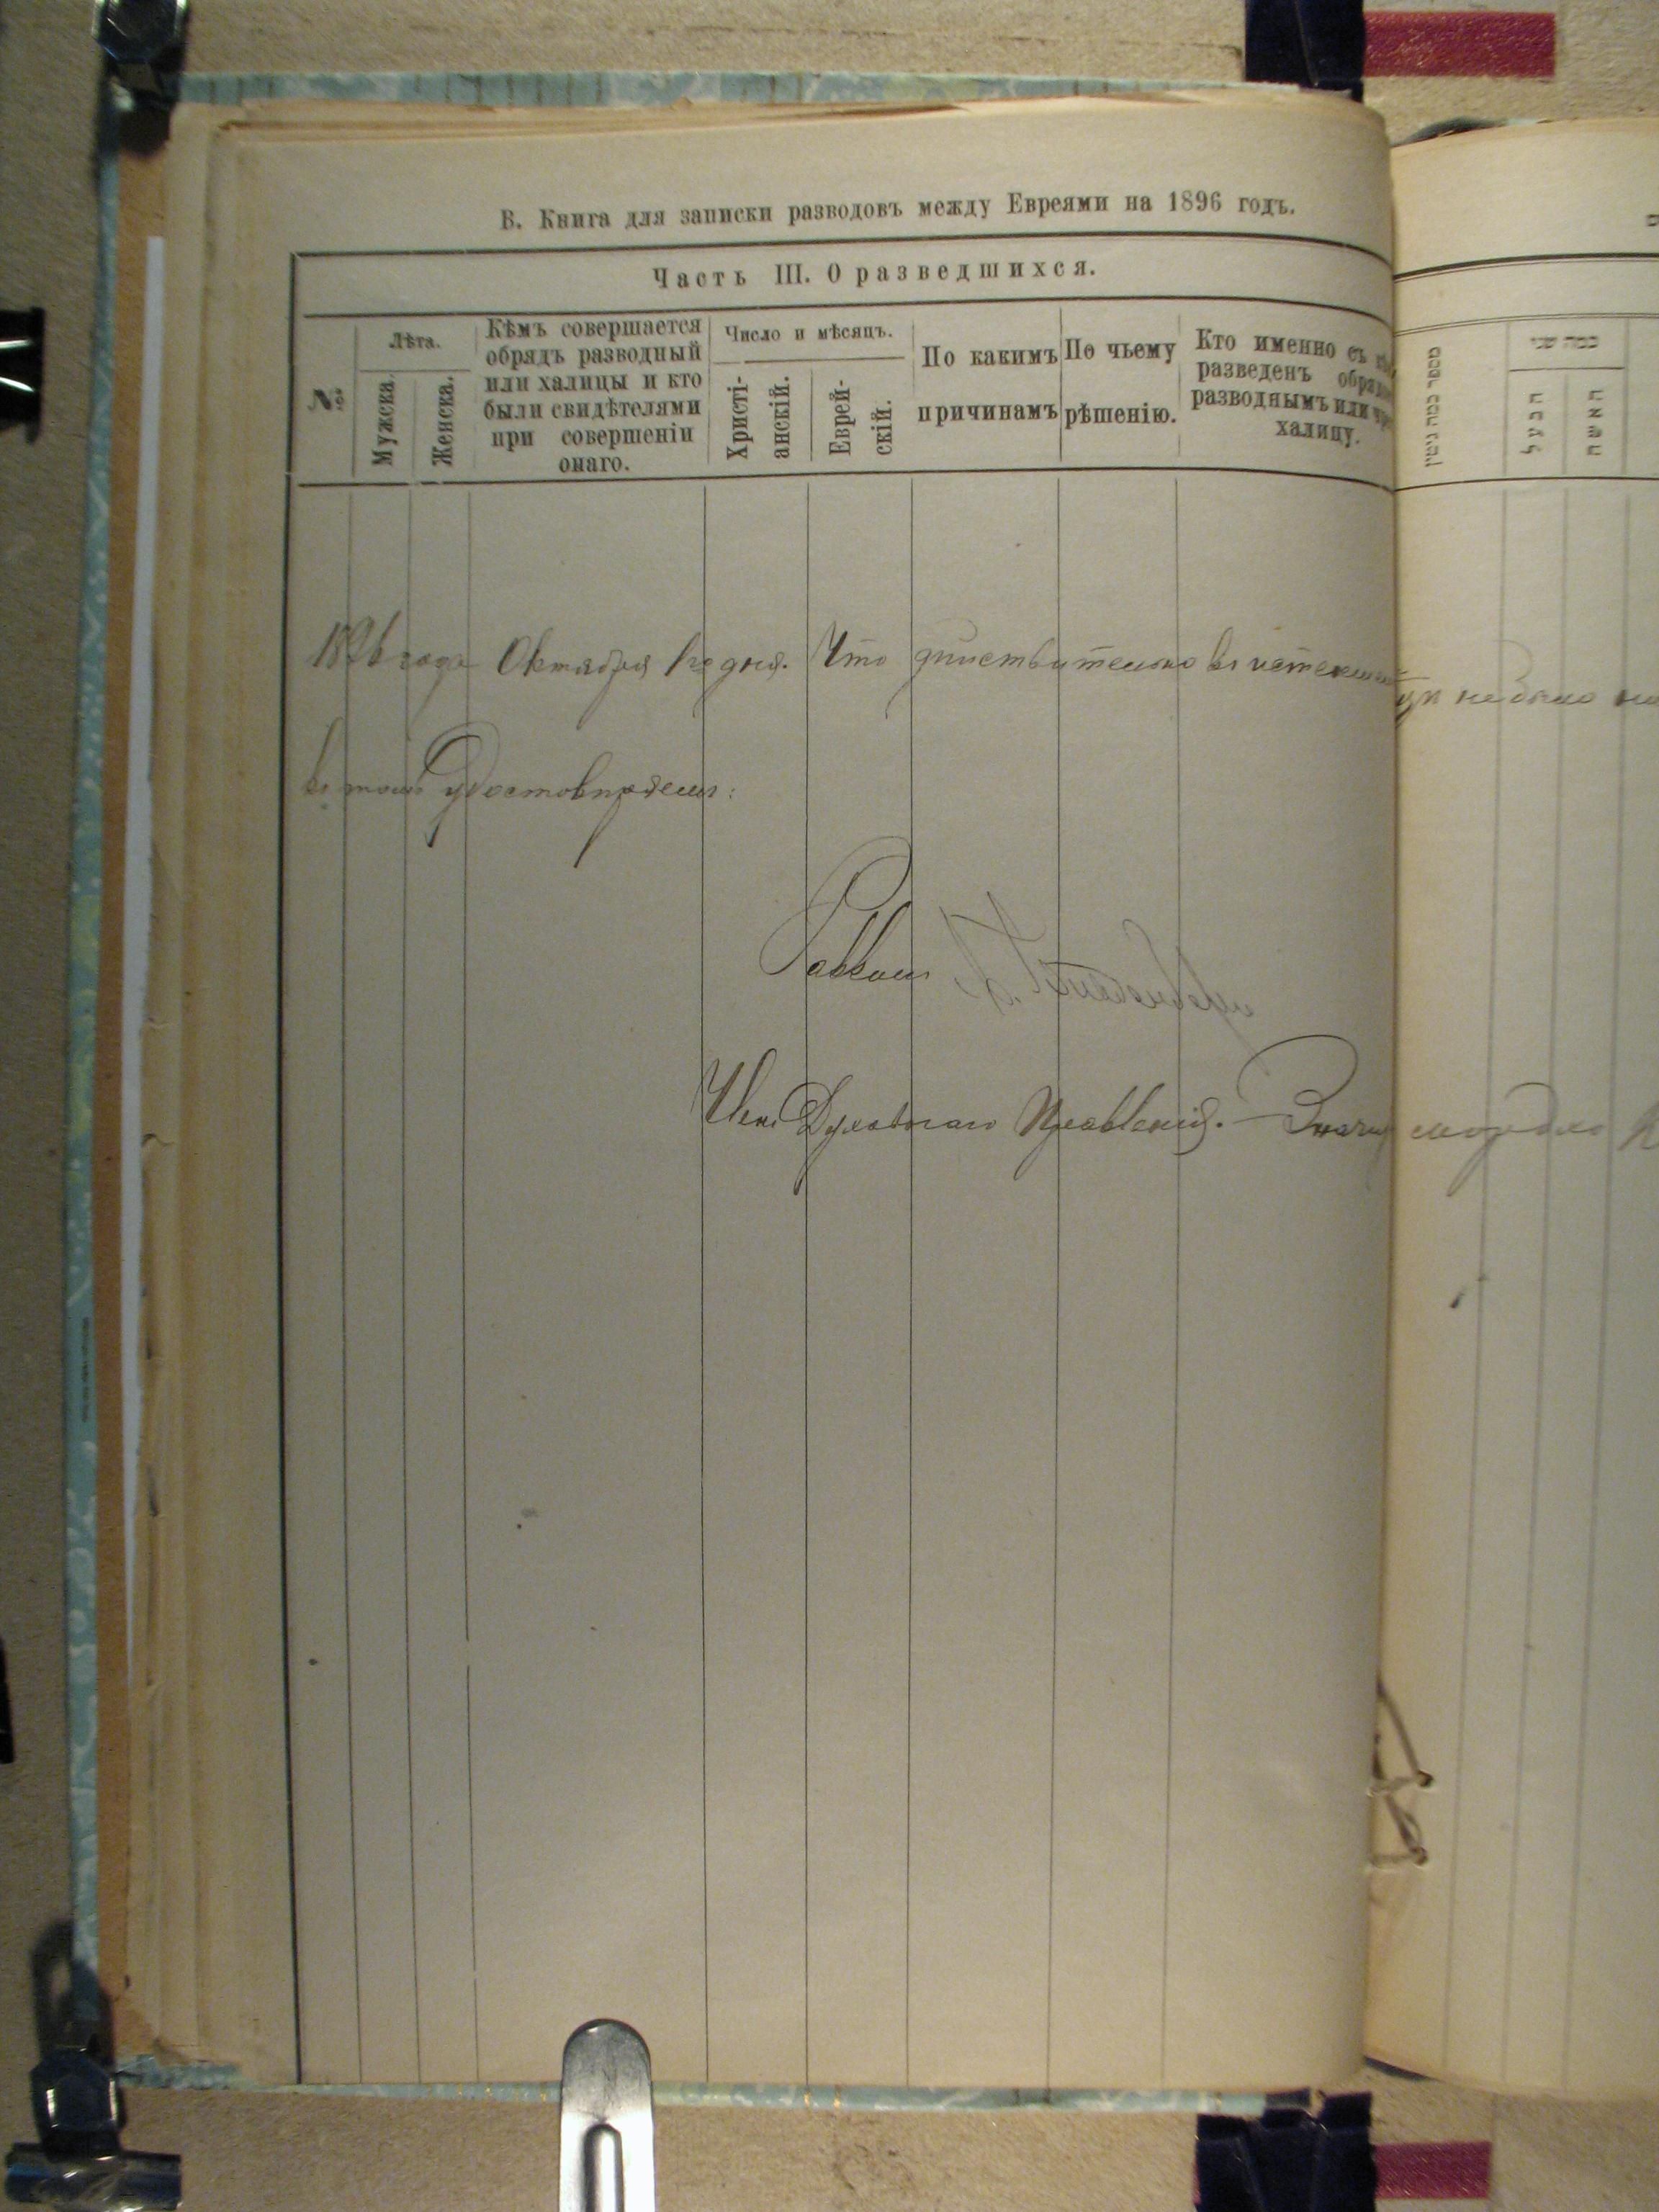 В. Книга для записки разводовъ между Евреями на 1896 годъ.
Часть III. О разведшихся.
№
Лѣта.
Мужска.
Женска.
Кѣмъ совершается
обрядъ разводный
или халицы и кто
были свидѣтелями
при совершеніи
онаго.
Число и мѣсяцъ.
Христі-
анскій.
Еврей-
скій.
По какимъ
причинамъ
По чьему
рѣшенію.
Кто именно съ
разведенъ
разводнымъ или
халицу.
מספר כמה גיטין
כמה שני
הבעל
האשה
1896 года Октября 1го дня. Что дѣйствительно въ истекшемъ не было
въ томъ удостовѣряемъ:
Раввинъ
Членъ Духовнаго Правленія.